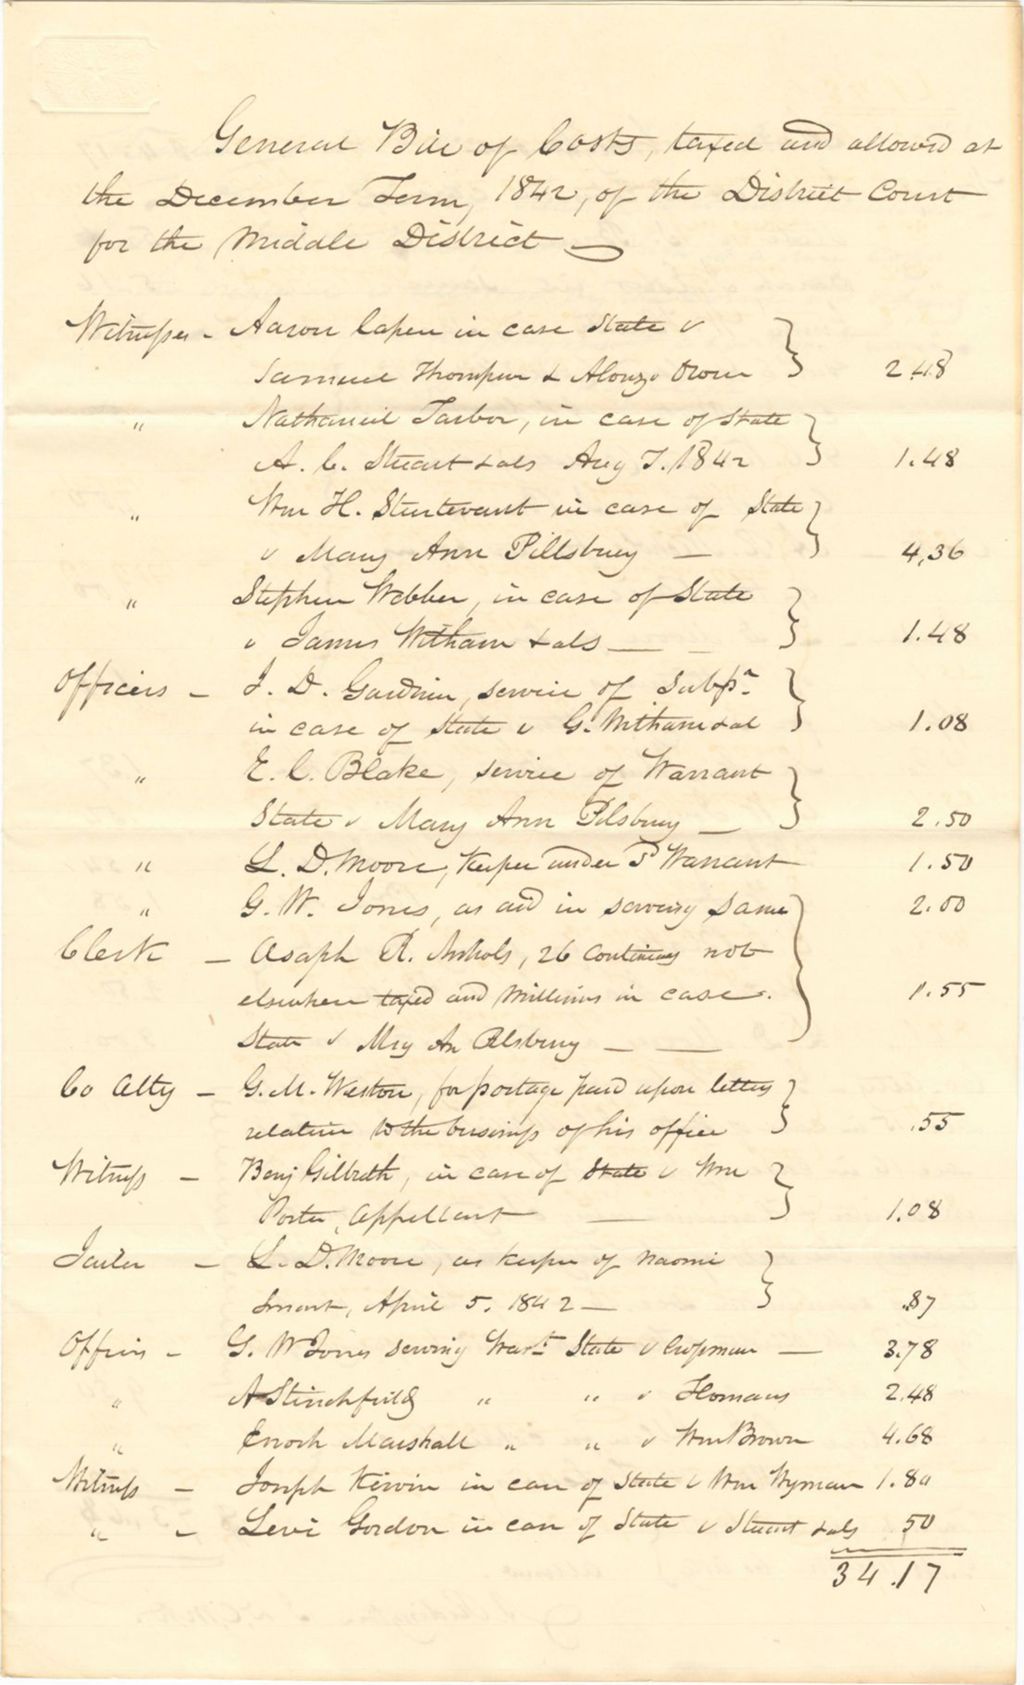 General Bill of Costs, taxed and allowed at
the December Term, 1842, of the District Court
for the Middle District
Witnesses - Aaron Capen in case State v
Samuel Thompson & Alonzo 2.48
" Nathaniel Tarbox, in case of State
A. C. Stuart & als Aug T. 1842 1.48
" Wm H. Sturtevant in case of State
v Mary Ann Pillsbury — 4,36
" Stephen Webber, in case of State
v James Witham & als — 1.48
Officers - J. D. Gardiner, service of Subpa
in case of State v G. Witham & al 1.08
" E. C. Blake, service of Warrant
State v Mary Ann Pilsbury — 2.50
" L. D. Moore, Keeper under Warrant 1.50
" G. W. Jones, as aid in serving same 2.00
Clerk - Asaph R. Nichols, 26 continues not
elsewhere taxed and in case. 1.55
State v Mry An Pilsbury — —
Co Atty - G. M. Weston, for postage paid upon letters
relative to the business of his office .55
Witness - Benj Gilbreth, in case of State v Wm
Porter, Appellant — 1.08
Jailer - L. D. Moore, as keeper of Naomi
Smart, April 5. 1842 — .87
Officers - G. W Jones serving Warrt State v Chapman — 3.78
" A Stinchfield " " v Homans 2.48
" Enoch Marshall " " v Wm Brown 4.68
Witness - Joseph Kirwin in case of State v Wm Wyman 1.80
" - Levi Gordon in case of State v Stuart & als 50
34.17